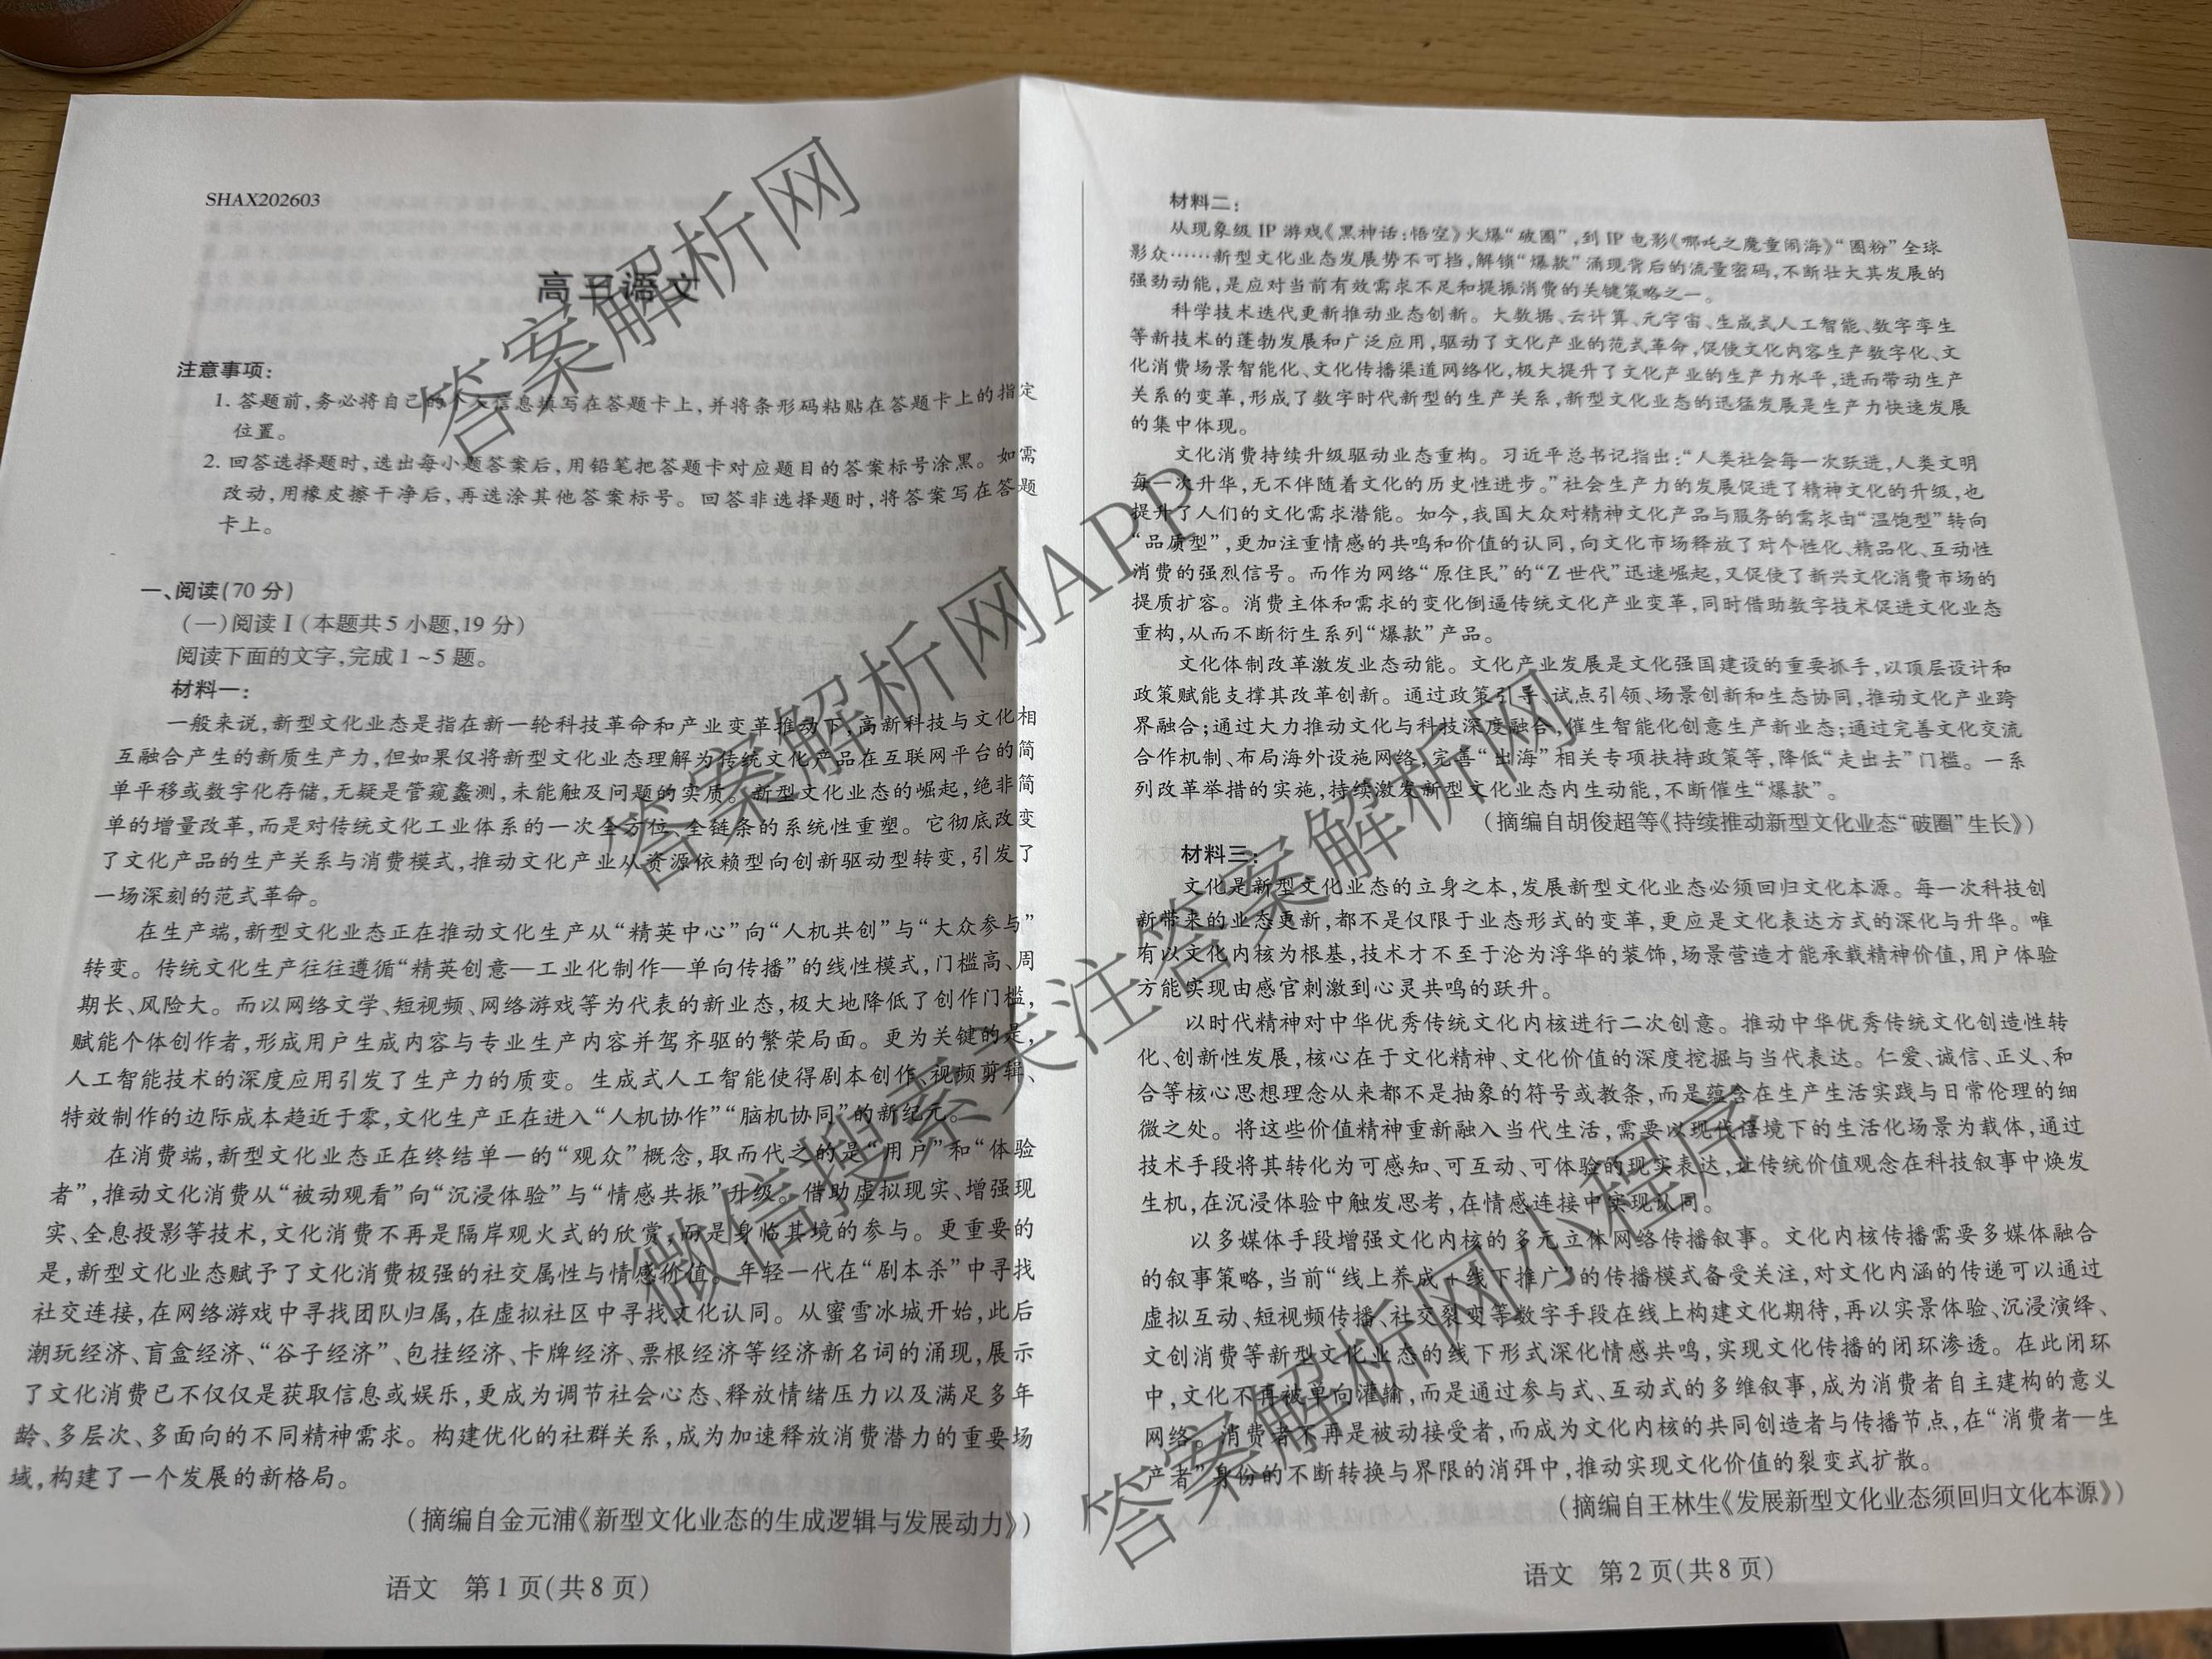 SHAX202603
高三语文
注意事项：
1. 答题前,务必将自己的个人信息填写在答题卡上,并将条形码粘贴在答题卡上的指定
位置。
2. 回答选择题时,选出每小题答案后,用铅笔把答题卡对应题目的答案标号涂黑。如需
改动,用橡皮擦干净后,再选涂其他答案标号。回答非选择题时,将答案写在答题
卡上。
一、阅读(70 分)
(一)阅读Ⅰ(本题共 5 小题,19 分)
阅读下面的文字,完成 1 ~5 题。
材料一：
一般来说,新型文化业态是指在新一轮科技革命和产业变革推动下,高新科技与文化相
互融合产生的新质生产力,但如果仅将新型文化业态理解为传统文化产品在互联网平台的简
单平移或数字化存储,无疑是管窥蠡测,未能触及问题的实质。新型文化业态的崛起,绝非简
单的增量改革,而是对传统文化工业体系的一次全方位、全链条的系统性重塑。它彻底改变
了文化产品的生产关系与消费模式,推动文化产业从资源依赖型向创新驱动型转变,引发了
一场深刻的范式革命。
在生产端,新型文化业态正在推动文化生产从“精英中心”向“人机共创”与“大众参与”
转变。传统文化生产往往遵循“精英创意—工业化制作—单向传播”的线性模式,门槛高、周
期长、风险大。而以网络文学、短视频、网络游戏等为代表的新业态,极大地降低了创作门槛,
赋能个体创作者,形成用户生成内容与专业生产内容并驾齐驱的繁荣局面。更为关键的是,
人工智能技术的深度应用引发了生产力的质变。生成式人工智能使得剧本创作、视频剪辑、
特效制作的边际成本趋近于零,文化生产正在进入“人机协作”“脑机协同”的新纪元。
在消费端,新型文化业态正在终结单一的“观众”概念,取而代之的是“用户”和“体验
者”,推动文化消费从“被动观看”向“沉浸体验”与“情感共振”升级。借助虚拟现实、增强现
实、全息投影等技术,文化消费不再是隔岸观火式的欣赏,而是身临其境的参与。更重要的
是,新型文化业态赋予了文化消费极强的社交属性与情感价值。年轻一代在“剧本杀”中寻找
社交连接,在网络游戏中寻找团队归属,在虚拟社区中寻找文化认同。从蜜雪冰城开始,此后
潮玩经济、盲盒经济、“谷子经济”、包挂经济、卡牌经济、票根经济等经济新名词的涌现,展示
了文化消费已不仅仅是获取信息或娱乐,更成为调节社会心态、释放情绪压力以及满足多年
龄、多层次、多面向的不同精神需求。构建优化的社群关系,成为加速释放消费潜力的重要场
域,构建了一个发展的新格局。
(摘编自金元浦《新型文化业态的生成逻辑与发展动力》)
语文　第 1 页(共 8 页)
材料二：
从现象级 IP 游戏《黑神话:悟空》火爆“破圈”,到 IP 电影《哪吒之魔童闹海》“圈粉”全球
影众……新型文化业态发展势不可挡,解锁“爆款”涌现背后的流量密码,不断壮大其发展的
强劲动能,是应对当前有效需求不足和提振消费的关键策略之一。
科学技术迭代更新推动业态创新。大数据、云计算、元宇宙、生成式人工智能、数字孪生
等新技术的蓬勃发展和广泛应用,驱动了文化产业的范式革命,促使文化内容生产数字化、文
化消费场景智能化、文化传播渠道网络化,极大提升了文化产业的生产力水平,进而带动生产
关系的变革,形成了数字时代新型的生产关系,新型文化业态的迅猛发展是生产力快速发展
的集中体现。
文化消费持续升级驱动业态重构。习近平总书记指出:“人类社会每一次跃进,人类文明
每一次升华,无不伴随着文化的历史性进步。”社会生产力的发展促进了精神文化的升级,也
提升了人们的文化需求潜能。如今,我国大众对精神文化产品与服务的需求由“温饱型”转向
“品质型”,更加注重情感的共鸣和价值的认同,向文化市场释放了对个性化、精品化、互动性
消费的强烈信号。而作为网络“原住民”的“Z 世代”迅速崛起,又促使了新兴文化消费市场的
提质扩容。消费主体和需求的变化倒逼传统文化产业变革,同时借助数字技术促进文化业态
重构,从而不断衍生系列“爆款”产品。
文化体制改革激发业态动能。文化产业发展是文化强国建设的重要抓手,以顶层设计和
政策赋能支撑其改革创新。通过政策引导、试点引领、场景创新和生态协同,推动文化产业跨
界融合;通过大力推动文化与科技深度融合,催生智能化创意生产新业态;通过完善文化交流
合作机制、布局海外设施网络,完善“出海”相关专项扶持政策等,降低“走出去”门槛。一系
列改革举措的实施,持续激发新型文化业态内生动能,不断催生“爆款”。
(摘编自胡俊超等《持续推动新型文化业态“破圈”生长》)
材料三：
文化是新型文化业态的立身之本,发展新型文化业态必须回归文化本源。每一次科技创
新带来的业态更新,都不是仅限于业态形式的变革,更应是文化表达方式的深化与升华。唯
有以文化内核为根基,技术才不至于沦为浮华的装饰,场景营造才能承载精神价值,用户体验
方能实现由感官刺激到心灵共鸣的跃升。
以时代精神对中华优秀传统文化内核进行二次创意。推动中华优秀传统文化创造性转
化、创新性发展,核心在于文化精神、文化价值的深度挖掘与当代表达。仁爱、诚信、正义、和
合等核心思想理念从来都不是抽象的符号或教条,而是蕴含在生产生活实践与日常伦理的细
微之处。将这些价值精神重新融入当代生活,需要以现代语境下的生活化场景为载体,通过
技术手段将其转化为可感知、可互动、可体验的现实表达,让传统价值观念在科技叙事中焕发
生机,在沉浸体验中触发思考,在情感连接中实现认同。
以多媒体手段增强文化内核的多元立体网络传播叙事。文化内核传播需要多媒体融合
的叙事策略,当前“线上养成+线下推广”的传播模式备受关注,对文化内涵的传递可以通过
虚拟互动、短视频传播、社交裂变等数字手段在线上构建文化期待,再以实景体验、沉浸演绎、
文创消费等新型文化业态的线下形式深化情感共鸣,实现文化传播的闭环渗透。在此闭环
中,文化不再被单向灌输,而是通过参与式、互动式的多维叙事,成为消费者自主建构的意义
网络。消费者不再是被动接受者,而成为文化内核的共同创造者与传播节点,在“消费者—生
产者”身份的不断转换与界限的消弭中,推动实现文化价值的裂变式扩散。
(摘编自王林生《发展新型文化业态须回归文化本源》)
语文　第 2 页(共 8 页)
答案解析网
答案解析网APP
微信搜索关注答案解析网
答案解析网小程序